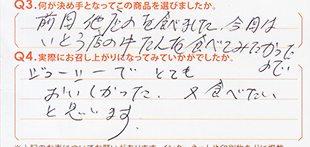 Q3.何が決め手となってこの商品を選びましたか。
前回他店のを食べました。今回は
いとう店の牛たんも食べてみたかった
ので
Q4.実際にお召し上がりになってみていかがでしたか。
ジューシーで とても
おいしかった。 又食べたい
と思います